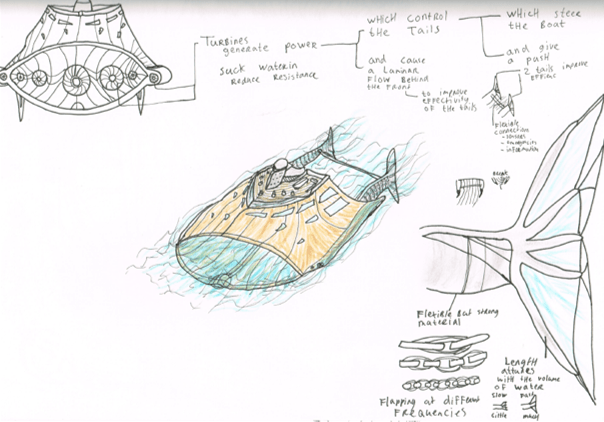 Turbines
generate power
Suck water in
Reduce Resistance
which control
the Tails
and cause
a Laminar
Flow Behind
the Front
to improve
effectivity
of the tails
which steer
the Boat
and give
a push
2 tails improve
Flexible
connection
Flexible But strong
material
Flapping at different
Frequencies
Length
with the volume
of water
slow
push
little
much